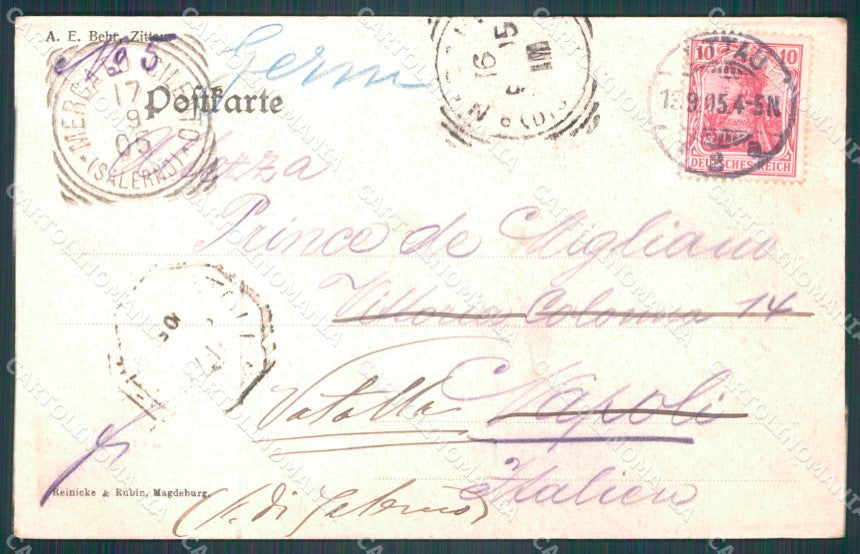 A. E. Behr, Zittau.
No 5
Germ
Postkarte
MERCATO CILENTO
17
9
05
(SALERNO)
16
15
10 10
ZITTAU
13.9.05.4-5N.
2 a
DEUTSCHES REICH
Prince de Migliano
Vittoria Colonna 14
Vatolla Napoli
Italien
(P. di Salerno)
Reinicke & Rubin, Magdeburg.
CARTOLINOMANIA